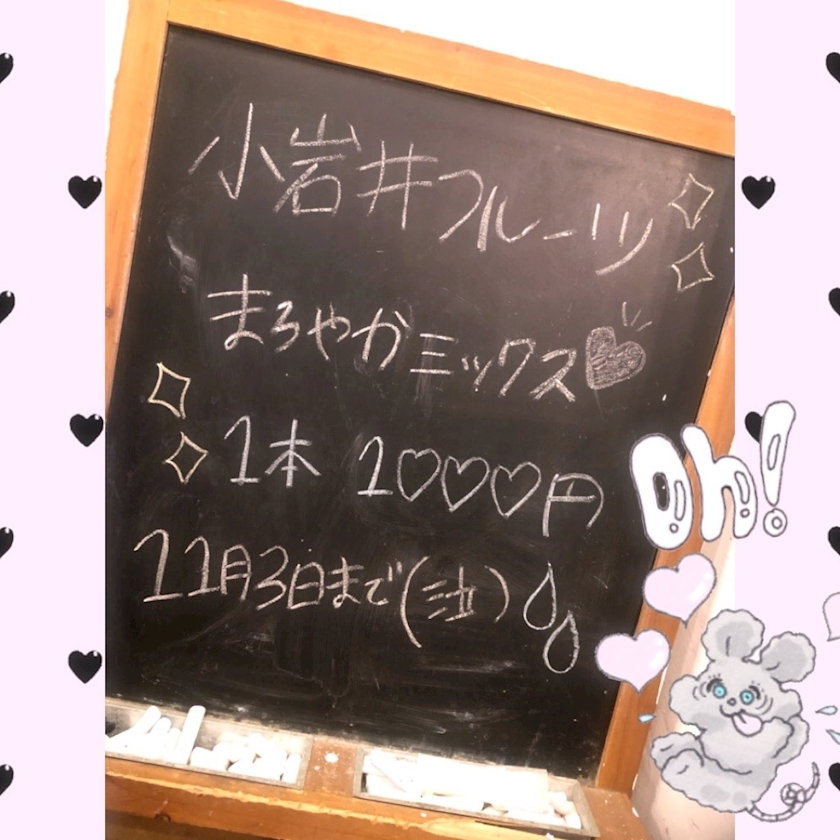 小岩井フルーツ
まろやかミックス♥
1本 1♡♡♡円
11月3日まで(泣)
Oh!